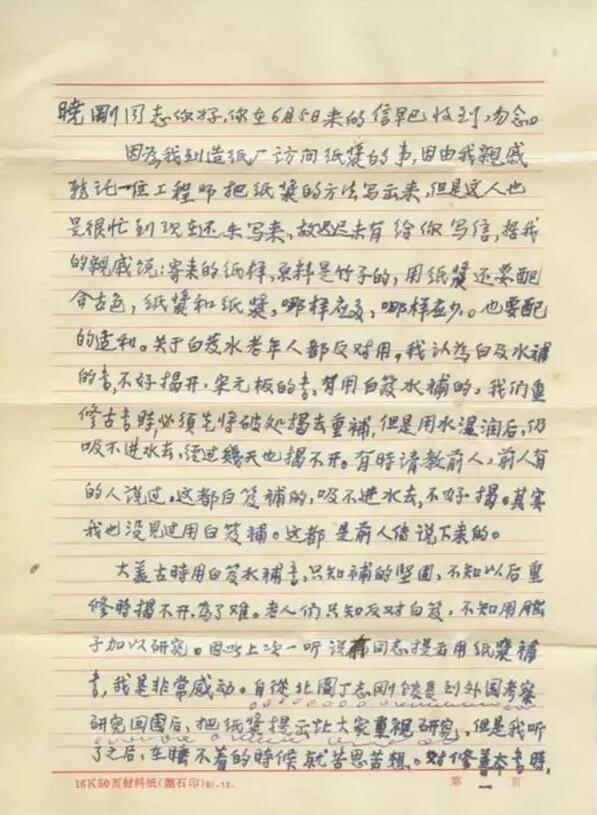 晓刚同志你好,你在6月5日来的信早已收到,勿念。
因为我到造纸厂访问纸漿的事,因由我親戚
转託一位工程师把纸漿的方法写出来,但是这人也
是很忙到现在还未写来,故迟迟未有给你写信,据我
的親戚说:寄来的纸样,原料是竹子的,用纸漿还要配
合古色,纸漿和纸漿,哪样应多,哪样应少。也要配
的适和。关于白芨水老年人都反对用,我认为白及水補
的書,不好揭开,宋元板的書,有用白芨水補的,我们重
修古書時,必须先将破处揭去重補,但是用水湿润后,仍
吸不进水去,经过幾天也揭不开。有時请教前人,前人有
的人说过。这都白芨補的,吸不进水去,不好揭。其实
我也没見过用白芨補。这都是前人传说下来的。
大盖古時用白芨水補書,只知補的坚固,不知以后重
修時揭不开,為了难。老人们只知反对白芨,不知用腦
子加以研究。因此上次一听说 同志提出用纸漿補
書,我是非常感动。自從北圖丁志刚 是到外国考察
研究回国后,把纸漿提出让大家重視研究,但是我听
了之后,在睡不着的時候就苦思苦想。对修善本書時,
16K50页材料纸(图石印)81.12.
第一页